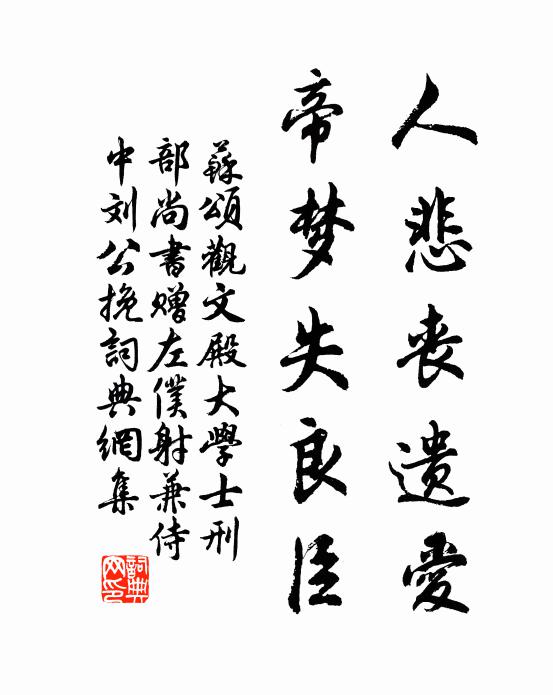 人悲丧遗愛
帝梦失良臣
蘇頌觀文殿大學士刑
部尚書赠左僕射兼侍
中刘公挽詞典網集
詞典
网印